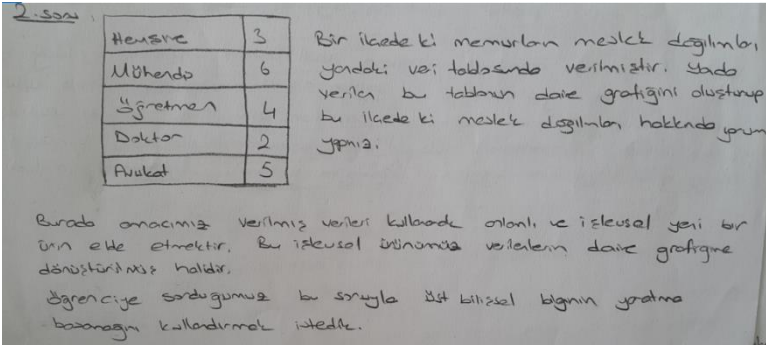 2. soru
Hemşire 3
Mühendis 6
Öğretmen 4
Doktor 2
Avukat 5
Bir ilçedeki memurların meslek dağılımları
yandaki veri tablosunda verilmiştir. Yada
verilen bu tablonun daire grafiğini oluşturup
bu ilçedeki meslek dağılımları hakkında yorum
yapınız.
Burada amacımız verilmiş verileri kullanarak anlamlı ve işlevsel yeni bir
ürün elde etmektir. Bu işlevsel ürünümüz verilerin daire grafiğine
dönüştürülmüş halidir.
Öğrenciye sorduğumuz bu soruyla üst bilişsel bilginin yaratma
basamağını kullandırmak istedik.